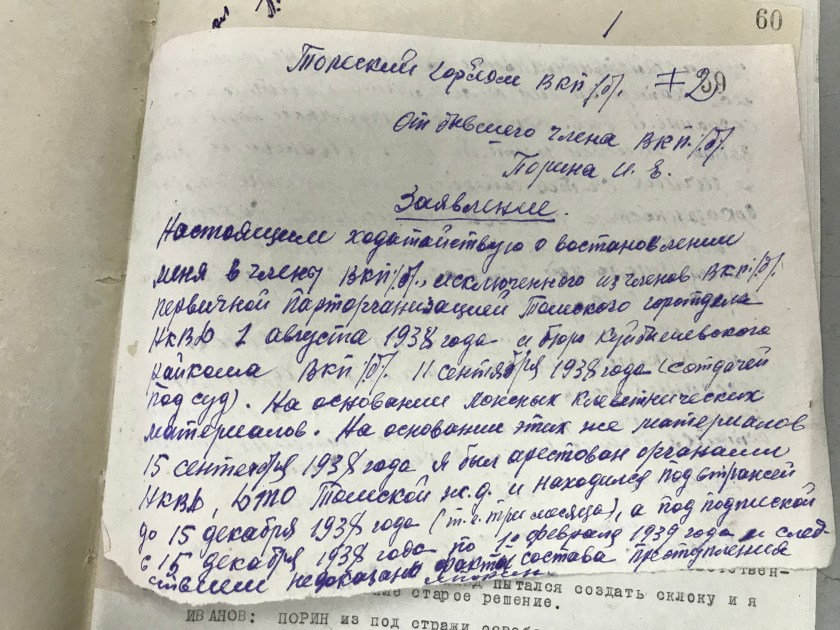 60
Томский горком ВКП/б/. 39
От бывшего члена ВКП/б/.
Порина И. Е.
Заявление.
Настоящим ходатайствую о востановлении
меня в члены ВКП/б/, исключенного из членов ВКП/б/.
первичной Парторганизацией Томского горотдела
НКВД 1 августа 1938 года и бюро Куйбышевского
Райкома ВКП/б/. 11 сентября 1938 года (с отдачей
под суд). На основании ложных клеветнических
материалов. На основании этих же материалов
15 сентября 1938 года я был арестован органами
НКВД, ДТО Томской ж.д. и находился под стражей
до 15 декабря 1938 года (т.е. три месяца), а под подпиской
с 15 декабря 1938 года по февраля 1939 года и след-
ствием недоказаны факты состава преступления
пытался создать склоку и я
старое решение.
ИВАНОВ: ПОРИН из под стражи